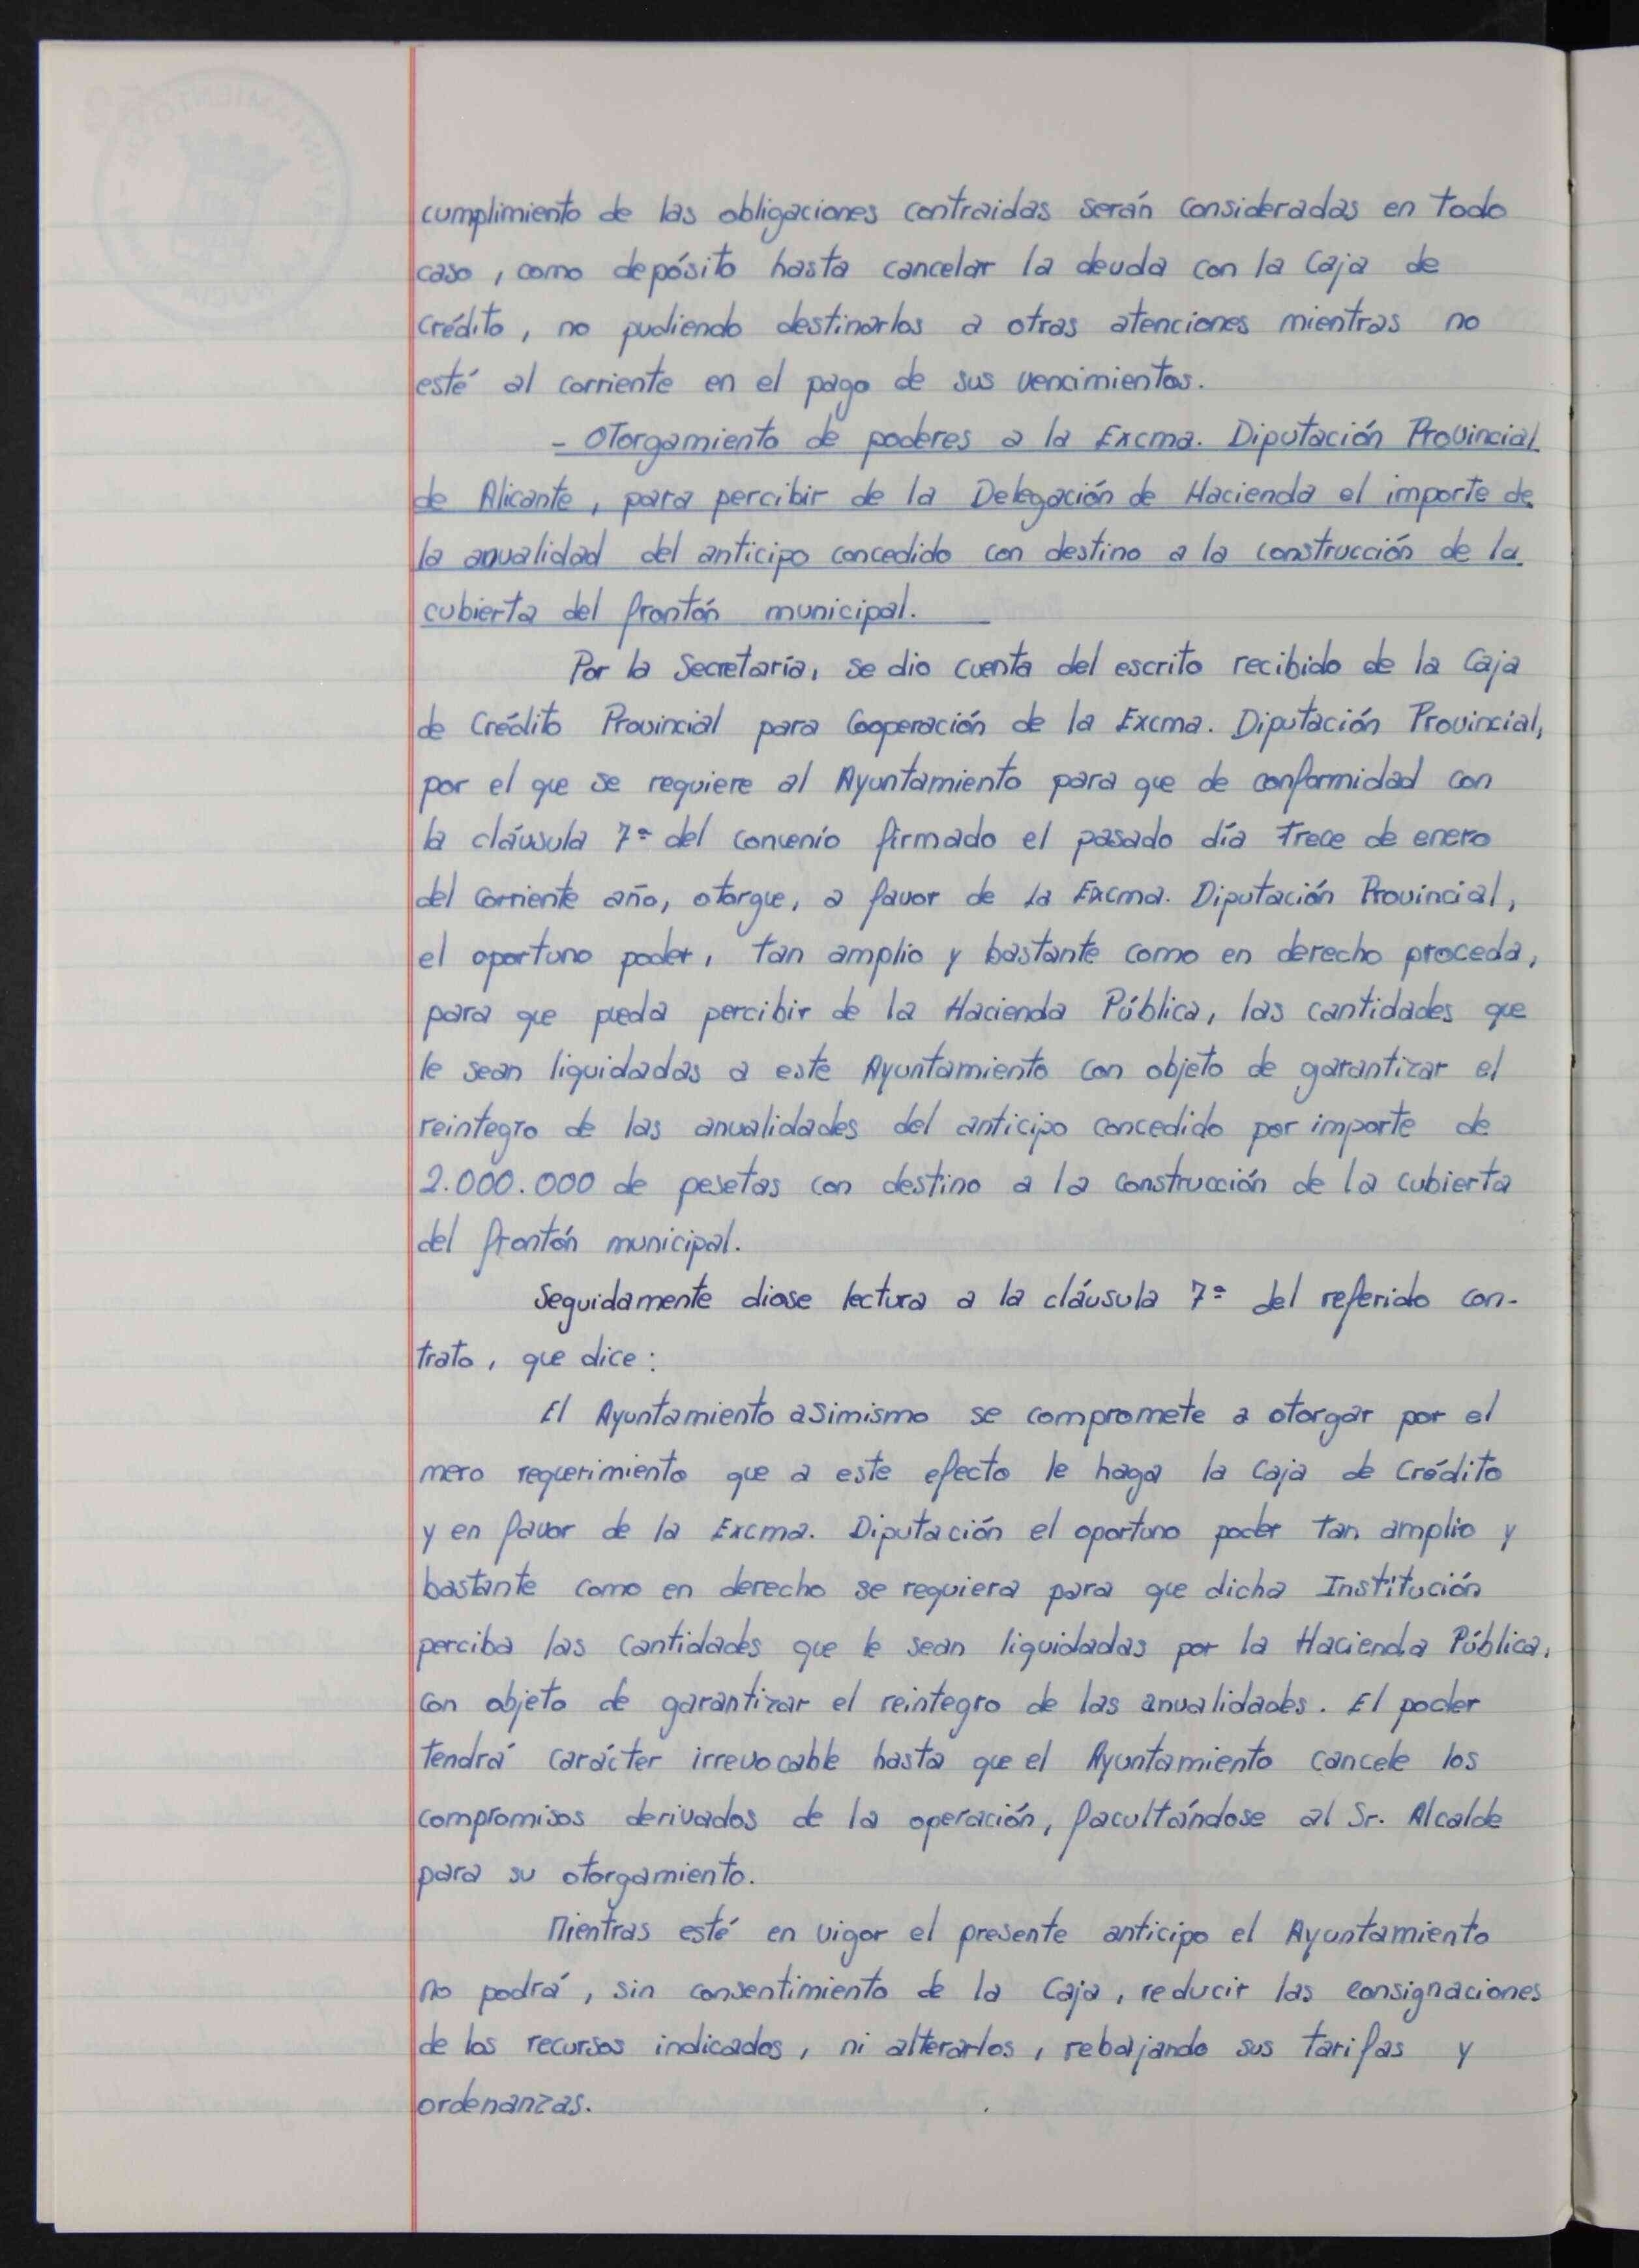 cumplimiento de las obligaciones contraidas serán consideradas en todo
caso, como depósito hasta cancelar la deuda con la Caja de
Crédito, no pudiendo destinarlos a otras atenciones mientras no
esté al corriente en el pago de sus vencimientos.
- Otorgamiento de poderes a la Excma. Diputación Provincial
de Alicante, para percibir de la Delegación de Hacienda el importe de
la anualidad del anticipo concedido con destino a la construcción de la
cubierta del frontón municipal.
Por la Secretaría, se dio cuenta del escrito recibido de la Caja
de Crédito Provincial para Cooperación de la Excma. Diputación Provincial,
por el que se requiere al Ayuntamiento para que de conformidad con
la cláusula 7ª del convenio firmado el pasado día trece de enero
del corriente año, otorgue, a favor de la Excma. Diputación Provincial,
el oportuno poder, tan amplio y bastante como en derecho proceda,
para que pueda percibir de la Hacienda Pública, las cantidades que
le sean liquidadas a este Ayuntamiento con objeto de garantizar el
reintegro de las anualidades del anticipo concedido por importe de
2.000.000 de pesetas con destino a la construcción de la cubierta
del frontón municipal.
Seguidamente diose lectura a la cláusula 7ª del referido con-
trato, que dice:
El Ayuntamiento asimismo se compromete a otorgar por el
mero requerimiento que a este efecto le haga la Caja de Crédito
y en favor de la Excma. Diputación el oportuno poder tan amplio y
bastante como en derecho se requiera para que dicha Institución
perciba las cantidades que le sean liquidadas por la Hacienda Pública,
con objeto de garantizar el reintegro de las anualidades. El poder
tendrá carácter irrevocable hasta que el Ayuntamiento cancele los
compromisos derivados de la operación, facultándose al Sr. Alcalde
para su otorgamiento.
Mientras esté en vigor el presente anticipo el Ayuntamiento
no podrá, sin consentimiento de la Caja, reducir las consignaciones
de los recursos indicados, ni alterarlos, rebajando sus tarifas y
ordenanzas.